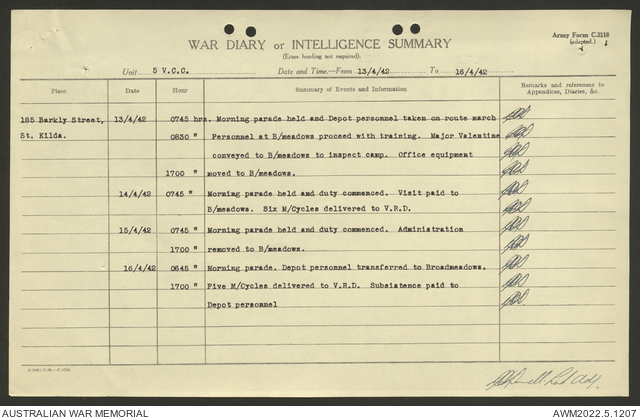 Army Form C.2118
(adapted.)
WAR DIARY or INTELLIGENCE SUMMARY
(Erase heading not required).
Unit 5 V.C.C. Date and Time.—From 13/4/42 To 16/4/42
Place Date Hour Summary of Events and Information Remarks and references to Appendices, Diaries, &c.
185 Barkly Street, 13/4/42 0745 hrs. Morning parade held and Depot personnel taken on route march
St. Kilda. 0830 " Personnel at B/meadows proceed with training. Major Valentine
conveyed to B/meadows to inspect camp. Office equipment
1700 " moved to B/meadows.
14/4/42 0745 " Morning parade held and duty commenced. Visit paid to
B/meadows. Six M/Cycles delivered to V.R.D.
15/4/42 0745 " Morning parade held and duty commenced. Administration
1700 " removed to B/meadows.
16/4/42 0645 " Morning parade. Depot personnel transferred to Broadmeadows.
1700 " Five M/Cycles delivered to V.R.D. Subsistence paid to
Depot personnel
AUSTRALIAN WAR MEMORIAL AWM2022.5.1207